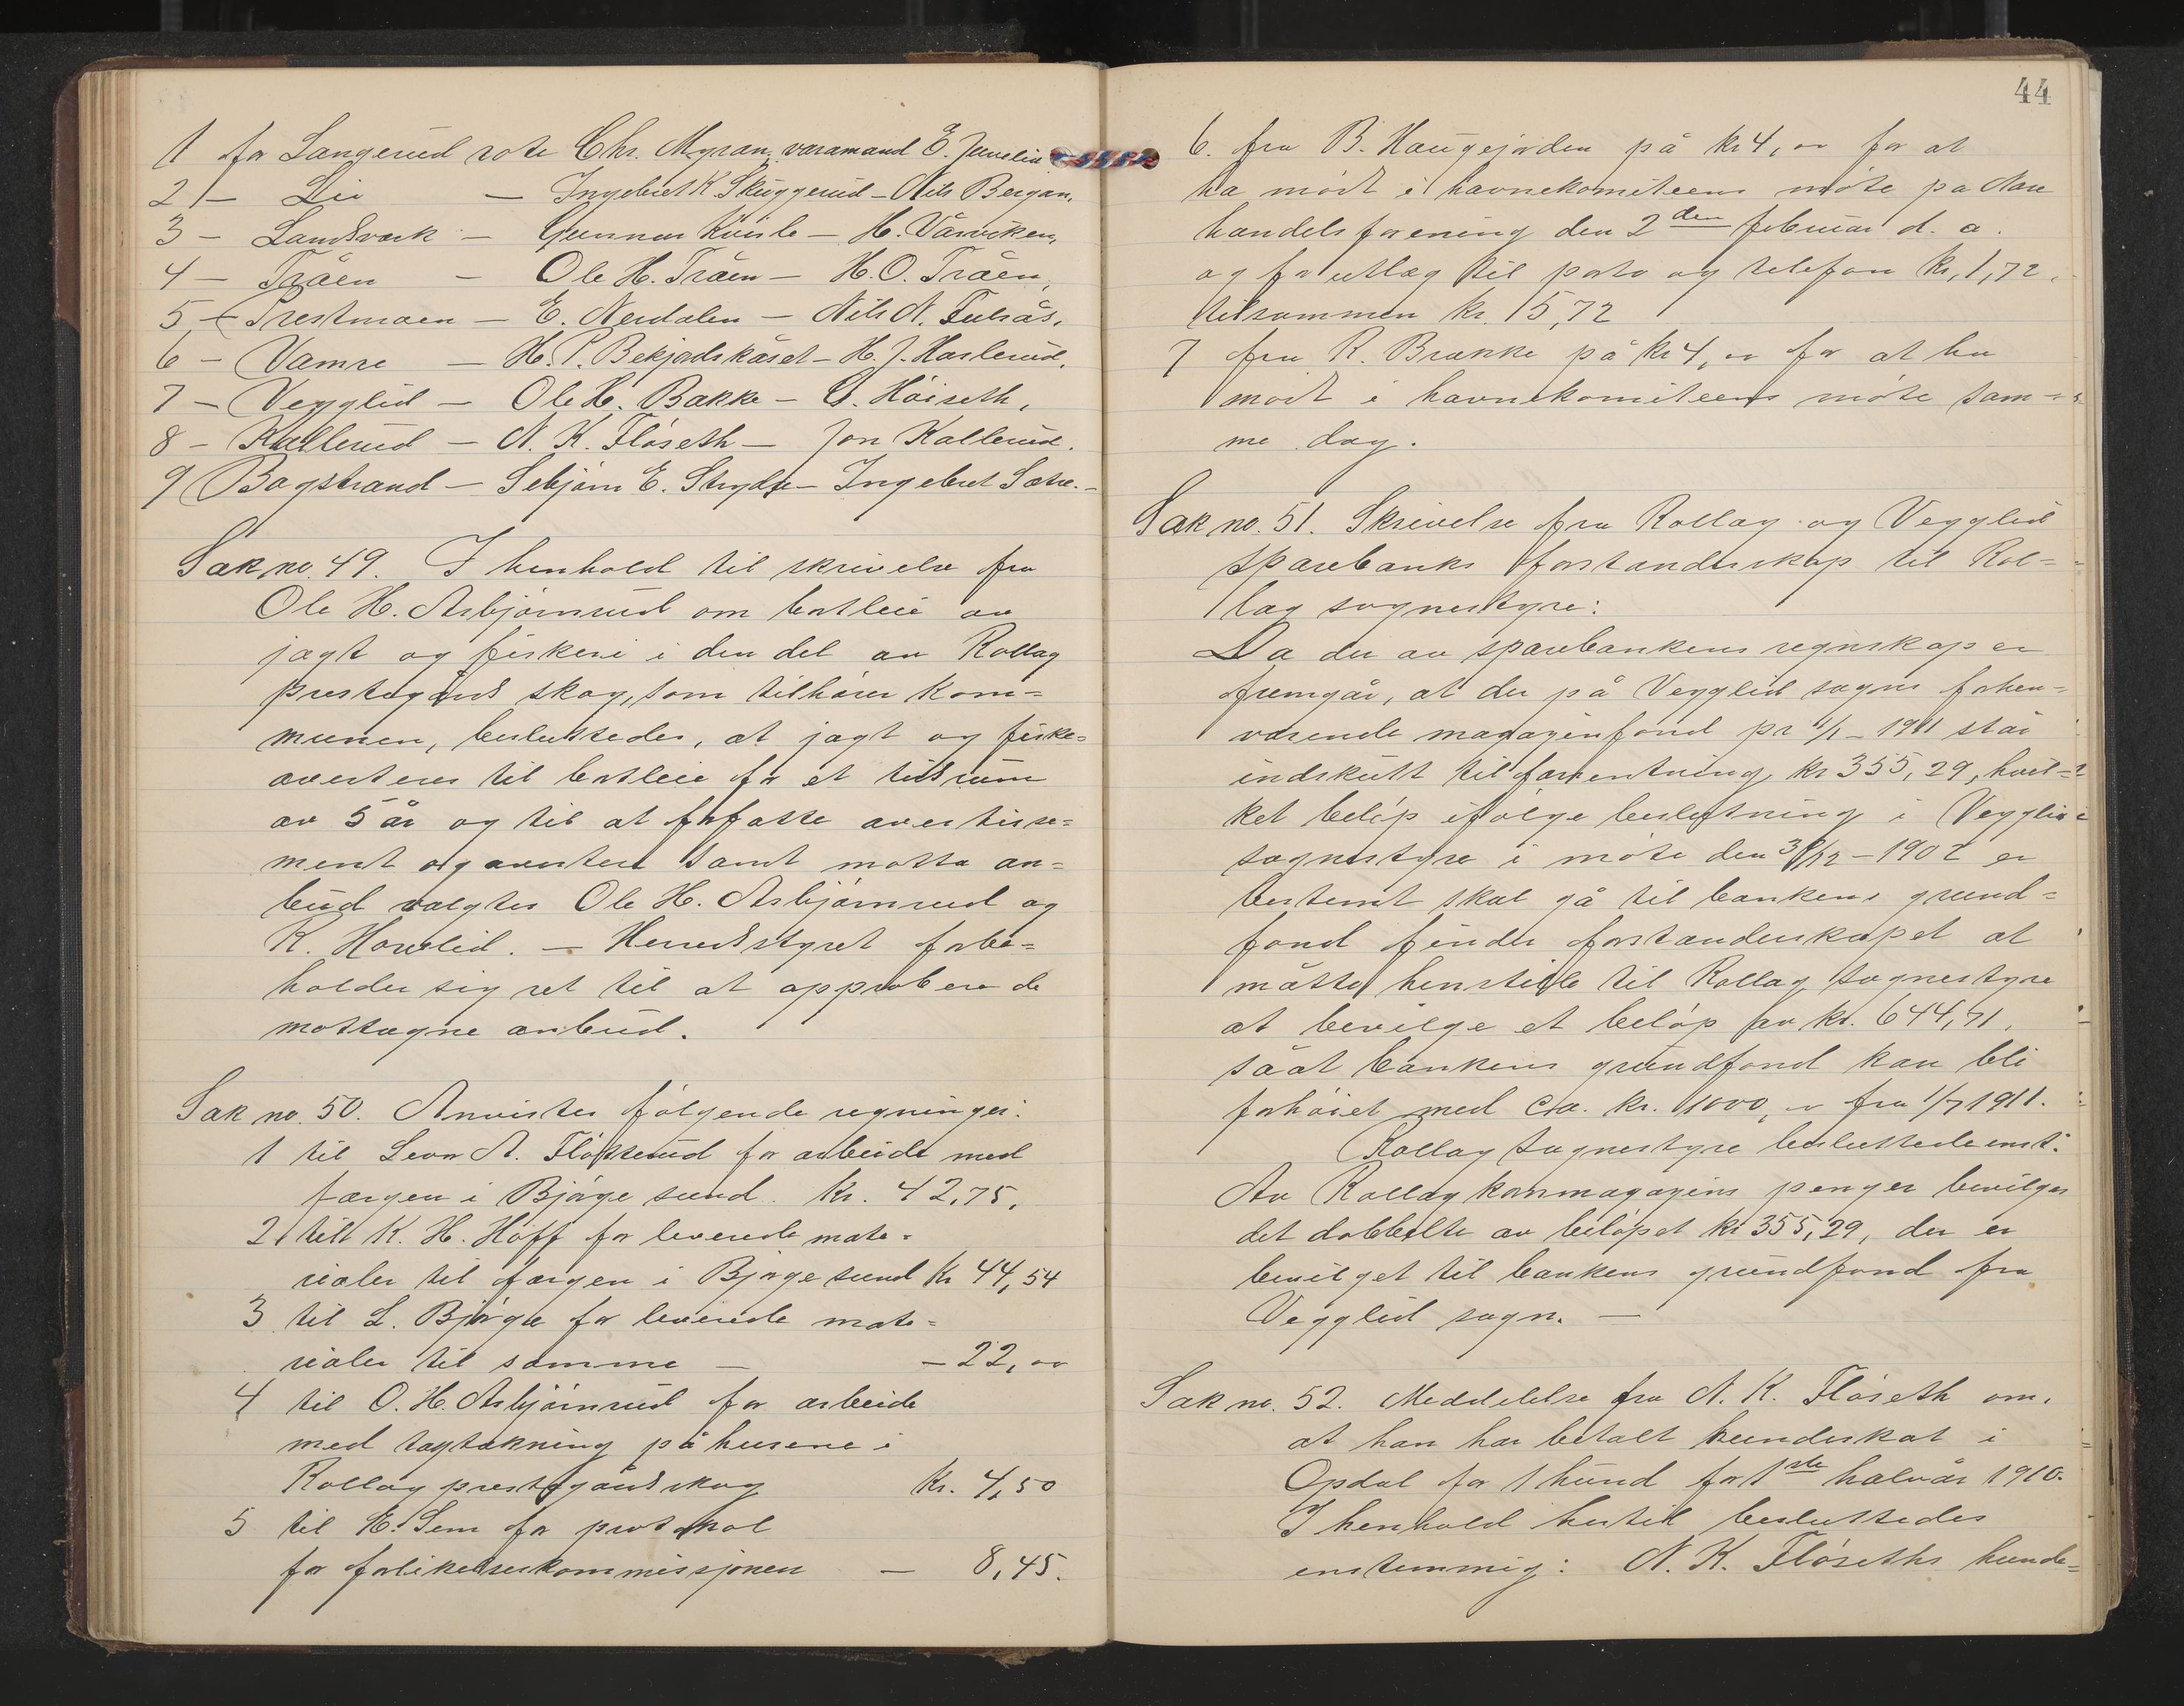 1 for Langerud rote Chr. Myran, varamand E. Juvelie
2 — Lii — Ingebret K Skuggerud — Nils Bergan,
3 — Landsverk — Gunnar Kvisle — H. Vårviken,
4 — Tråen — Ole H. Tråen — H. O. Tråen,
5 — Prestmoen — E. Nerdalen — Nils N. Fulsås,
6 — Vamre — H. P. Bekjordskåset — H. J. Haslerud,
7 — Vegglid — Ole H. Bakke — G. Höiseth,
8 — Kallerud — N. K. Flöseth — Jon Kallerud.
9 Bogstrand — Sebjörn E. Strydse — Ingebret Sætre. —
Sak no. 49. I henhold til skrivelse fra
Ole H. Asbjörnrud om bortleie av
jagt og fiskeri i den del av Rollag
prestegårds skog, som tilhörer kom=
munen, besluttedes, at jagt og fiske=
averteres til bortleie for et tidsrum
av 5 år og til at forfatte avertisse=
ment og avertere samt motta an=
bud valgtes Ole H. Asbjörnrud og
K. Hovelid. — Herredstyret forbe=
holder sig ret til at approbere de
mottagne anbud.
Sak no. 50. Anvistes fölgende regninger:
1 til Levor A. Flåtterud for arbeide med
færgen i Björgesund. Kr. 42,75,
2 till K. H. Hoff for leverede mate=
rialer til færgen i Björgesund Kr 44,54
3 til L. Björge for leverede mate=
rialer til samme — — 22,00
4 til O. H. Asbjörnrud for arbeide
med tagtækning på husene i
Rollag prestegårdsskog Kr. 4,50
5 til E. Sem for protokol
for forlikelseskommissjonen — 8,45.
44
6. fra B. Haugejorden på kr 4,00 for at
ha mödt i havnekomiteens möte på Nore
handelsforening den 2den februar d. a.
og for utlæg til porto og telefon kr. 1,72,
tilsammen kr. 5,72
7 fra K. Brække på kr 4,00 for at ha
mödt i havnekomiteens möte sam=
me dag.
Sak no. 51. Skrivelse fra Rollag og Vegglid
sparebanks forstanderskap til Rol=
lag sognestyre:
Da der av sparebankens regnskap er
fremgår, at der på Vegglid sogns forhen=
værende magazinfond pr 1/1 — 1911 står
indskutt til forrentning kr 355,29, hvil=
ket belöp ifölge beslutning i Vegglid
sognestyre i möte den 3/12 — 1907 er
bestemt skal gå til bankens grund=
fond finder forstanderskapet at
måtte henstille til Rollag sognestyre
at bevilge et belöp av kr. 644,71,
såat bankens grundfond kan bli
forhöiet med cta. kr. 1000,00 fra 1/7 1911.
Rollag sognestyre besluttede enst:
Av Rollag kornmagazins penger bevilges
det dobbelte av belöpet kr 355,29, der er
bevilget til bankens grundfond fra
Vegglid sogn. —
Sak no. 52. Meddelelse fra N. K. Flöseth om,
at han har betalt hundeskat i
Opdal for 1 hund for 1ste halvår 1910.
I henhold hertil besluttedes
enstemmig: N. K. Flöseths hunde=